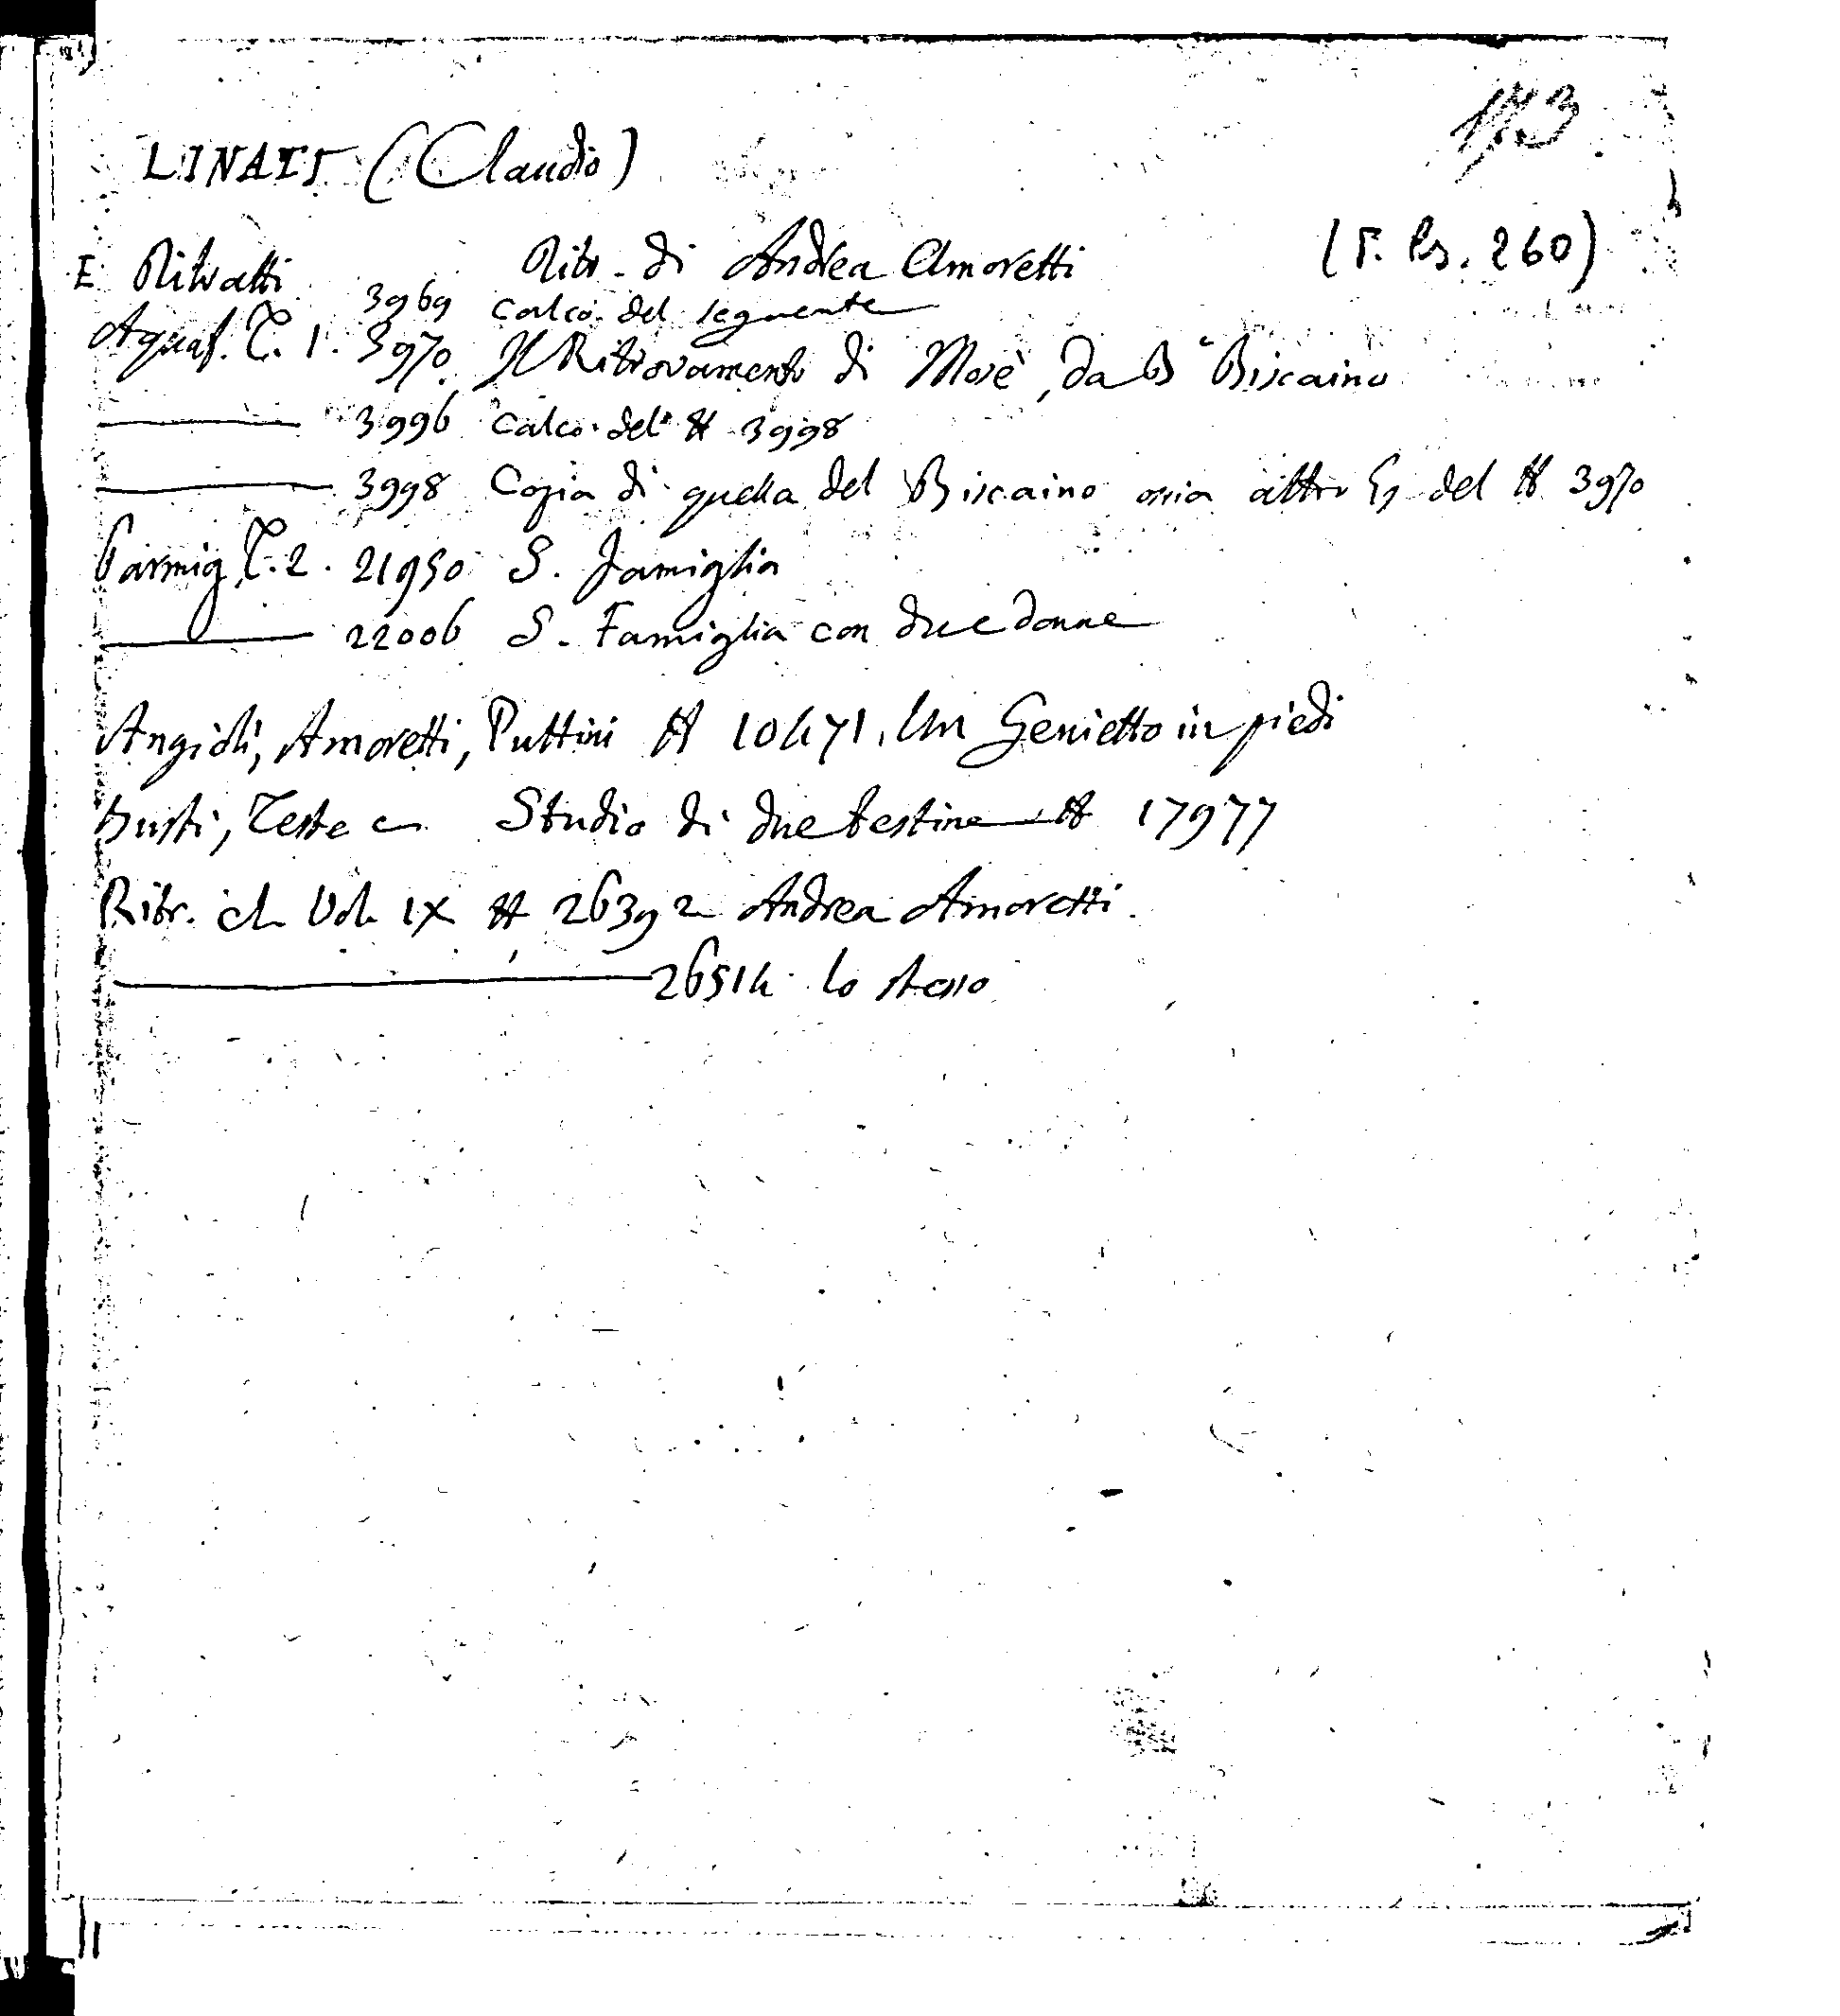 173
LINATI (Claudio)
E Ritratti Ritr. di Andrea Amoretti (T. Ps. 260)
3969 Calco del seguente
Aquaf. T. 1. 3970 Il Ritrovamento di Mosè, da B Biscaino
3996 Calco del # 3998
3998 Copia di quella del Biscaino ossia altro Es del # 3970
Parmig. T. 2. 21950 S. Famiglia
22006 S. Famiglia con due donne
Angioli, Amoretti, Puttini # 10471. Un Genietto in piedi
Busti, Teste Studio di due testine # 17977
Ritr. Vol. IX # 26392 Andrea Amoretti.
26514 lo stesso